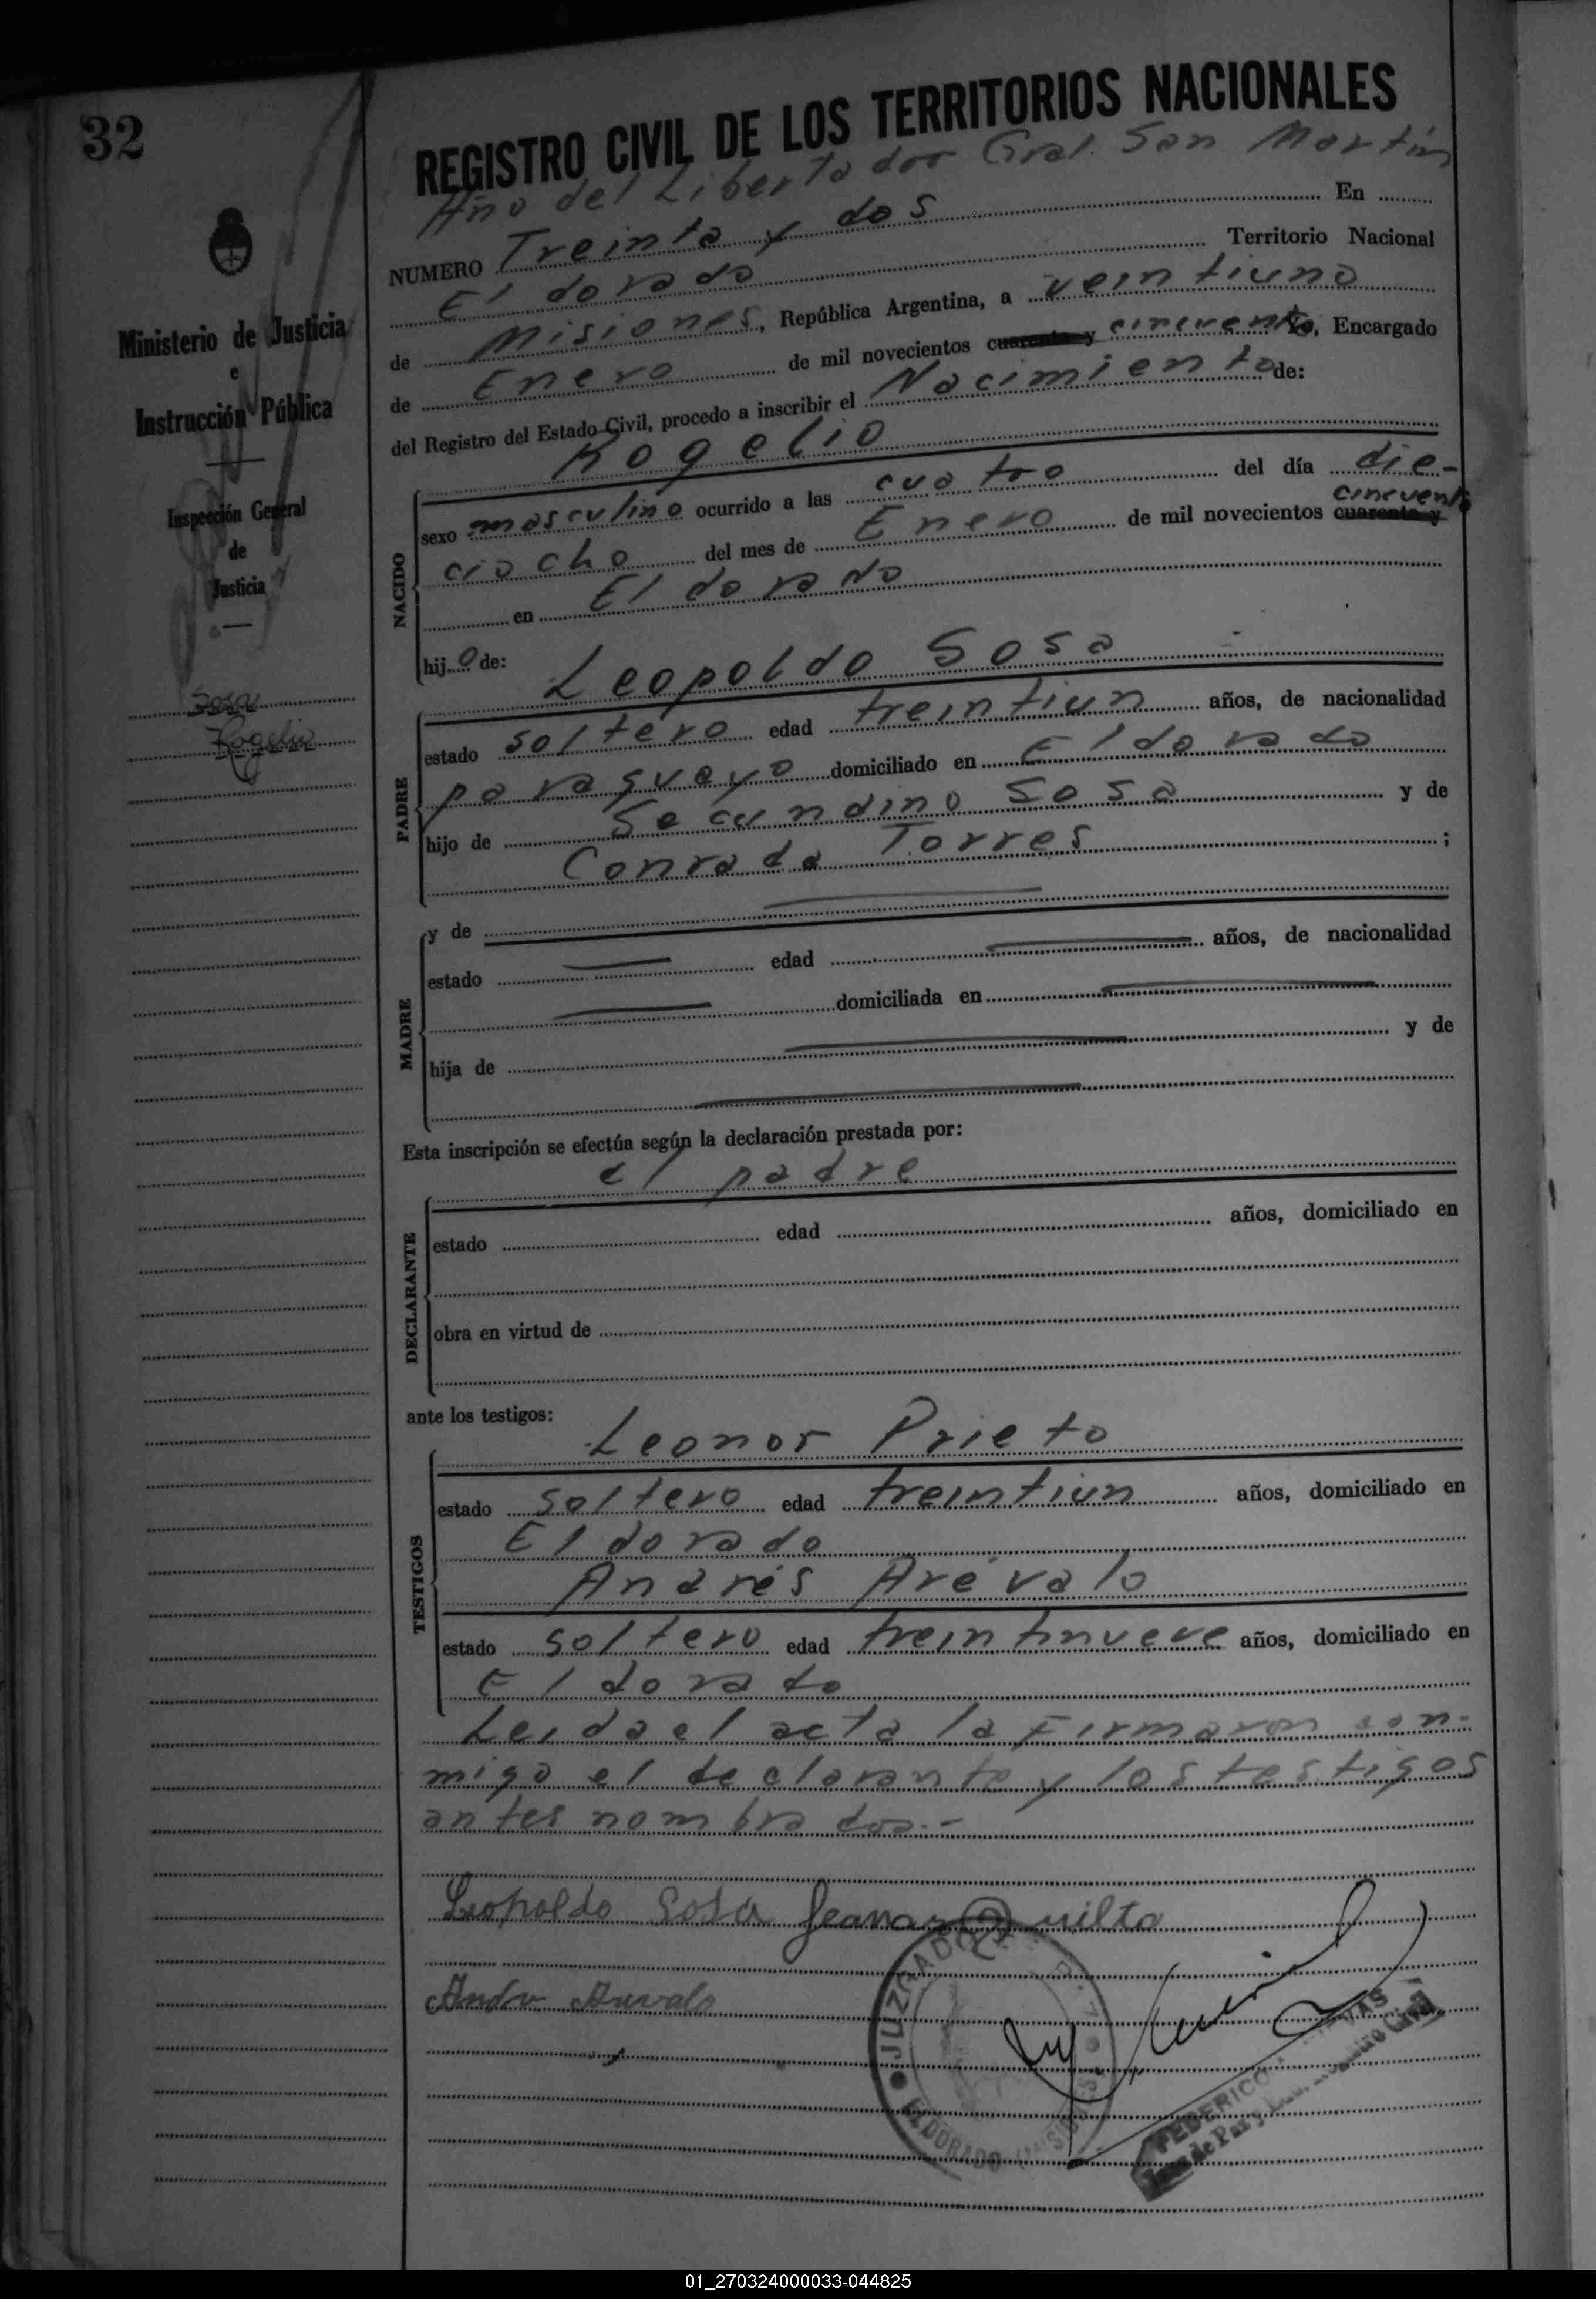 32
REGISTRO CIVIL DE LOS TERRITORIOS NACIONALES
Año del Libertador Gral. San Martín
NUMERO Treinta y dos En
Eldorado Territorio Nacional
de Misiones, República Argentina, a veintiuno
de Enero de mil novecientos cuarenta y cincuenta, Encargado
del Registro del Estado Civil, procedo a inscribir el Nacimiento de:
Rogelio
Ministerio de Justicia
e
Instrucción Pública
Inspección General
de
Justicia
Sosa
Rogelio
NACIDO
sexo masculino ocurrido a las cuatro del día die-
cincuenta
ciocho del mes de Enero de mil novecientos cuarenta y
en Eldorado
hijo de: Leopoldo Sosa
PADRE
estado soltero edad treintiun años, de nacionalidad
paraguayo domiciliado en Eldorado
hijo de Secundino Sosa y de
Conrada Torres ;
MADRE
y de
estado edad años, de nacionalidad
domiciliada en
hija de y de
Esta inscripción se efectúa según la declaración prestada por:
el padre
DECLARANTE
estado edad años, domiciliado en
obra en virtud de
ante los testigos:
Leonor Prieto
TESTIGOS
estado soltero edad treintiun años, domiciliado en
Eldorado
Andrés Arévalo
estado soltero edad treintinueve años, domiciliado en
Eldorado
Leida el acta la firmaron con-
migo el declarante y los testigos
antes nombrados.-
Leopoldo Sosa
JUZGADO
ELDORADO (MISIONES)
FEDERICO
Juez de Paz y Registro Civil
01_270324000033-044825